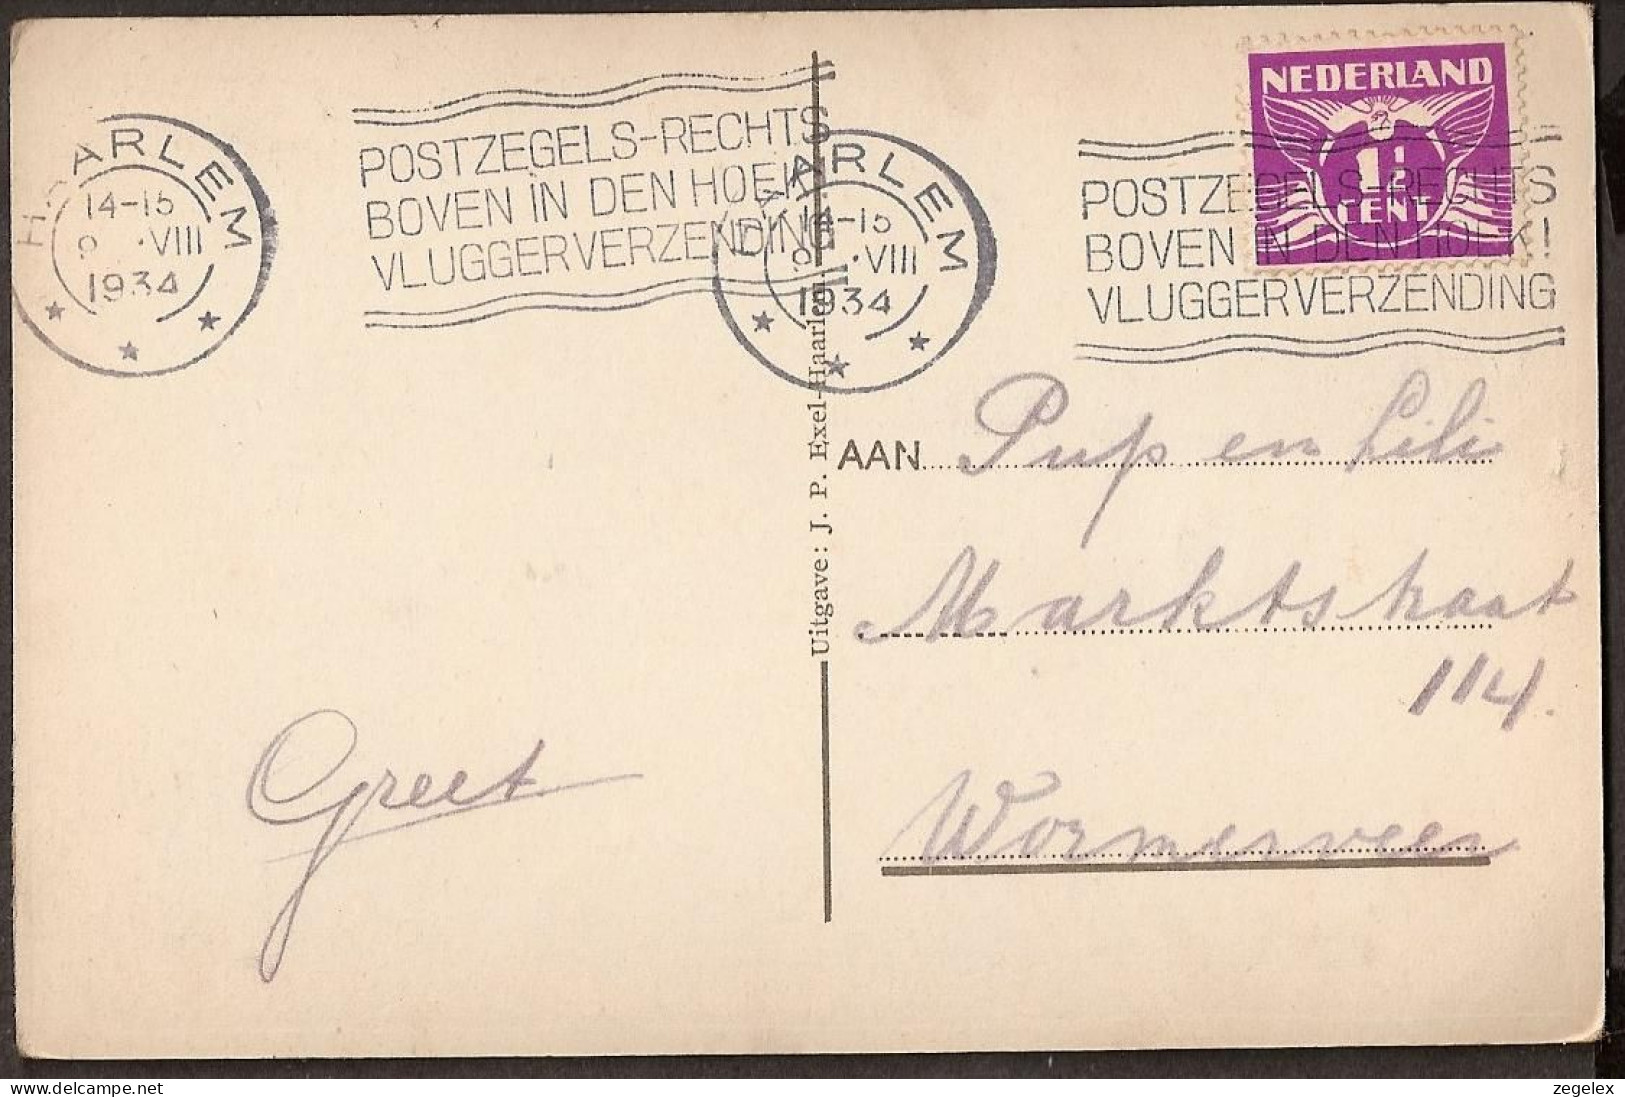 HAARLEM
14-15
9 .VIII
1934
POSTZEGELS-RECHTS
BOVEN IN DEN HOEK!
VLUGGERVERZENDING
HAARLEM
14-15
9 .VIII
1934
POSTZEGELS-RECHTS
BOVEN IN DEN HOEK!
VLUGGERVERZENDING
NEDERLAND
1½
CENT
Uitgave: J. P. Exel-Haarlem
AAN Pup en Lili
Marktstraat
114.
Wormerveer
Greet
zegelex